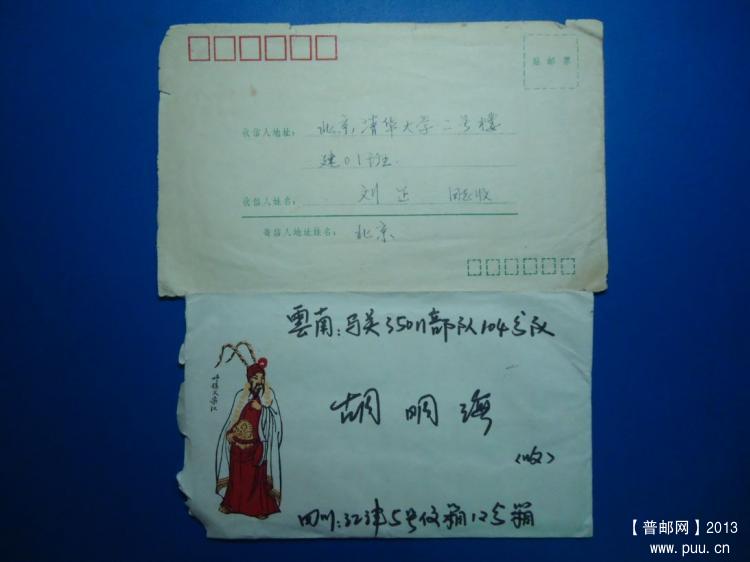 贴邮票
收信人地址：北京清华大学二号楼
建01班
收信人姓名：刘 同志收
寄信人地址姓名：北京
雲南：马关35011部队104分队
胡明海
(收)
呼保义宋江
四川：江津5号信箱12分箱
【普邮网】2013
www.puu.cn